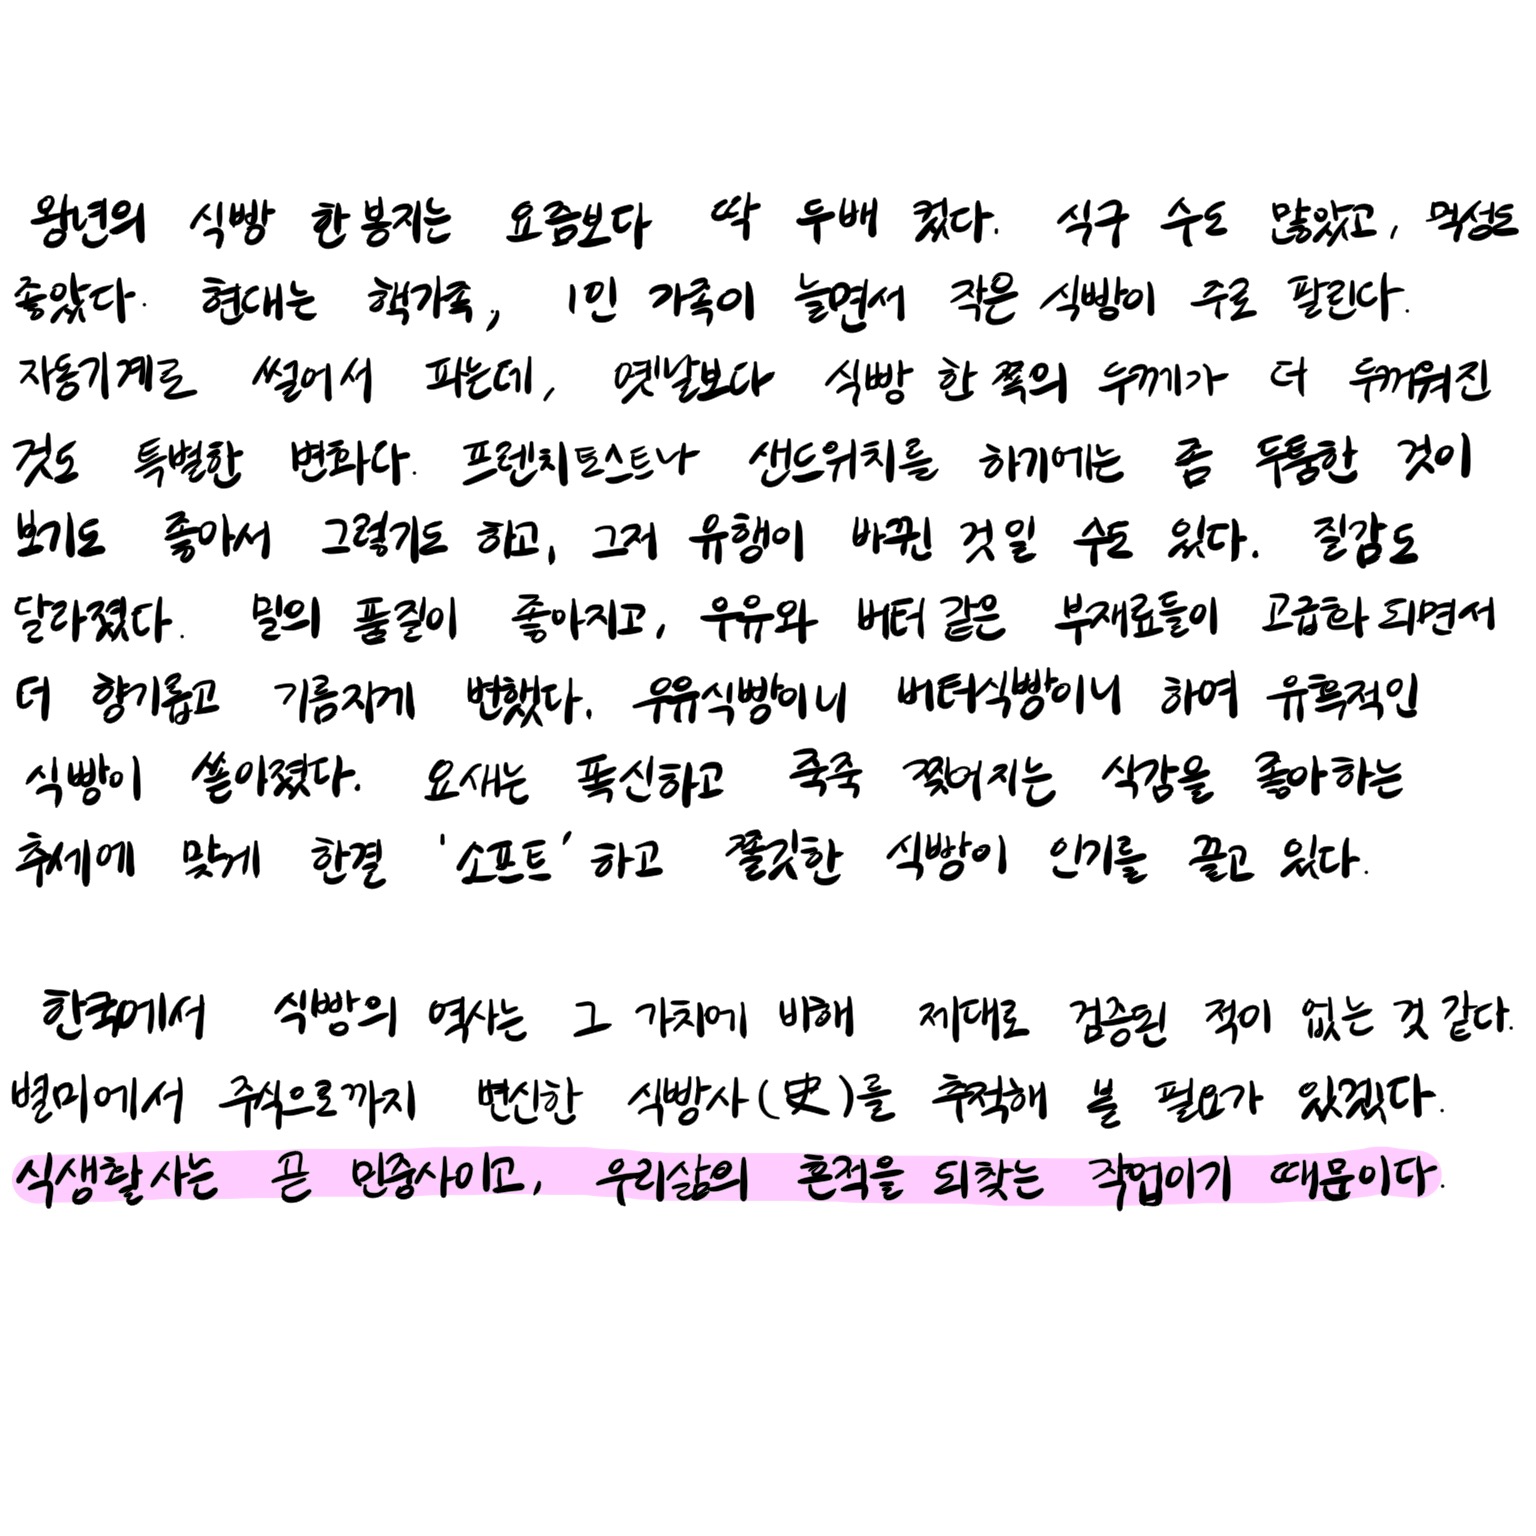 왕년의 식빵 한 봉지는 요즘보다 딱 두배 컸다. 식구 수도 많았고, 먹성도
좋았다. 현대는 핵가족, 1인 가족이 늘면서 작은 식빵이 주로 팔린다.
자동기계로 썰어서 파는데, 옛날보다 식빵 한 쪽의 두께가 더 두꺼워진
것도 특별한 변화다. 프렌치토스트나 샌드위치를 하기에는 좀 두툼한 것이
보기도 좋아서 그렇기도 하고, 그저 유행이 바뀐 것일 수도 있다. 질감도
달라졌다. 밀의 품질이 좋아지고, 우유와 버터 같은 부재료들이 고급화 되면서
더 향기롭고 기름지게 변했다. 우유식빵이니 버터식빵이니 하여 유혹적인
식빵이 쏟아졌다. 요새는 폭신하고 죽죽 찢어지는 식감을 좋아하는
추세에 맞게 한결 '소프트'하고 쫄깃한 식빵이 인기를 끌고 있다.
한국에서 식빵의 역사는 그 가치에 비해 제대로 검증된 적이 없는 것 같다.
별미에서 주식으로까지 변신한 식빵사(史)를 추적해 볼 필요가 있겠다.
식생활사는 곧 민중사이고, 우리삶의 흔적을 되찾는 작업이기 때문이다.